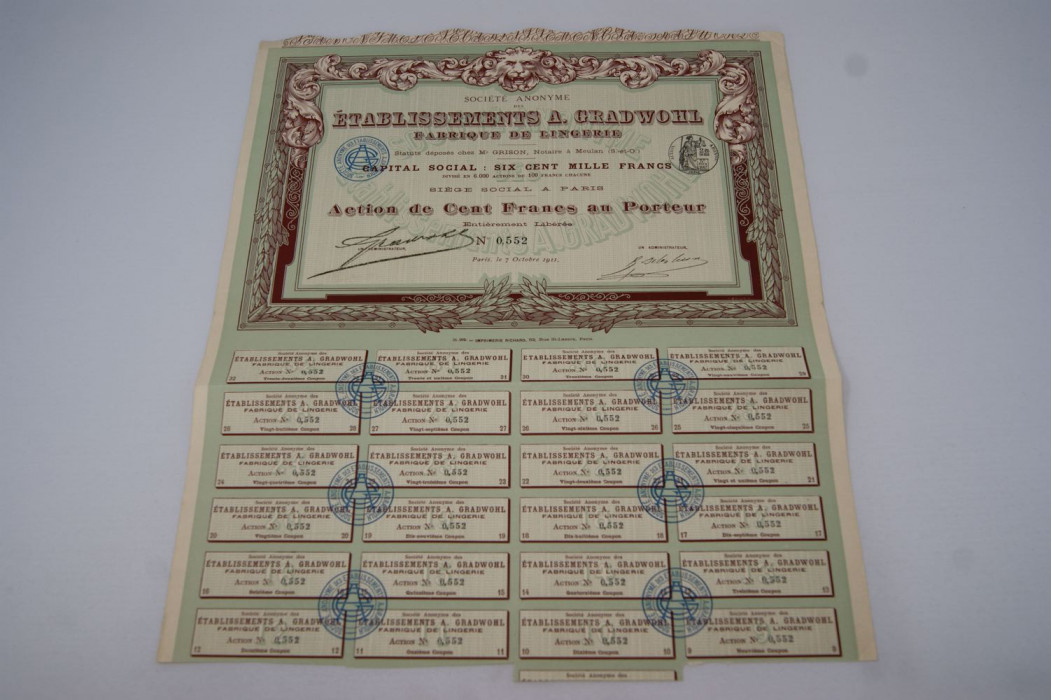 SOCIÉTÉ ANONYME
DES
ÉTABLISSEMENTS A. GRADWOHL
FABRIQUE DE LINGERIE
Statuts déposés chez Me GRISON, Notaire à Meulan (S.-et-O.)
CAPITAL SOCIAL : SIX CENT MILLE FRANCS
DIVISÉ EN 6.000 ACTIONS DE 100 FRANCS CHACUNE
SIÈGE SOCIAL A PARIS
Action de Cent Francs au Porteur
Entièrement Libérée
No 0,552
UN ADMINISTRATEUR,
Paris, le 7 Octobre 1911.
Société Anonyme des
ÉTABLISSEMENTS A. GRADWOHL
FABRIQUE DE LINGERIE
ACTION No 0,552
32 Trente-deuxième Coupon
Société Anonyme des
ÉTABLISSEMENTS A. GRADWOHL
FABRIQUE DE LINGERIE
ACTION No 0,552
Trente et unième Coupon 31
Société Anonyme des
ÉTABLISSEMENTS A. GRADWOHL
FABRIQUE DE LINGERIE
ACTION No 0,552
30 Trentième Coupon
Société Anonyme des
ÉTABLISSEMENTS A. GRADWOHL
FABRIQUE DE LINGERIE
ACTION No 0,552
Vingt-neuvième Coupon 29
ÉTABLISSEMENTS A. GRADWOHL
FABRIQUE DE LINGERIE
ACTION No 0,552
28 Vingt-huitième Coupon 28
ÉTABLISSEMENTS A. GRADWOHL
FABRIQUE DE LINGERIE
ACTION No 0,552
27 Vingt-septième Coupon 27
ÉTABLISSEMENTS A. GRADWOHL
FABRIQUE DE LINGERIE
ACTION No 0,552
26 Vingt-sixième Coupon 26
ÉTABLISSEMENTS A. GRADWOHL
FABRIQUE DE LINGERIE
ACTION No 0,552
25 Vingt-cinquième Coupon 25
Société Anonyme des
ÉTABLISSEMENTS A. GRADWOHL
FABRIQUE DE LINGERIE
ACTION No 0,552
24 Vingt-quatrième Coupon
Société Anonyme des
ÉTABLISSEMENTS A. GRADWOHL
FABRIQUE DE LINGERIE
ACTION No 0,552
Vingt-troisième Coupon 23
Société Anonyme des
ÉTABLISSEMENTS A. GRADWOHL
FABRIQUE DE LINGERIE
ACTION No 0,552
22 Vingt-deuxième Coupon
Société Anonyme des
ÉTABLISSEMENTS A. GRADWOHL
FABRIQUE DE LINGERIE
ACTION No 0,552
Vingt et unième Coupon 21
Société Anonyme des
ÉTABLISSEMENTS A. GRADWOHL
FABRIQUE DE LINGERIE
ACTION No 0,552
20 Vingtième Coupon 20
Société Anonyme des
ÉTABLISSEMENTS A. GRADWOHL
FABRIQUE DE LINGERIE
ACTION No 0,552
19 Dix-neuvième Coupon 19
Société Anonyme des
ÉTABLISSEMENTS A. GRADWOHL
FABRIQUE DE LINGERIE
ACTION No 0,552
18 Dix-huitième Coupon 18
Société Anonyme des
ÉTABLISSEMENTS A. GRADWOHL
FABRIQUE DE LINGERIE
ACTION No 0,552
17 Dix-septième Coupon 17
Société Anonyme des
ÉTABLISSEMENTS A. GRADWOHL
FABRIQUE DE LINGERIE
ACTION No 0,552
16 Seizième Coupon
Société Anonyme des
ÉTABLISSEMENTS A. GRADWOHL
FABRIQUE DE LINGERIE
ACTION No 0,552
Quinzième Coupon 15
Société Anonyme des
ÉTABLISSEMENTS A. GRADWOHL
FABRIQUE DE LINGERIE
ACTION No 0,552
14 Quatorzième Coupon
Société Anonyme des
ÉTABLISSEMENTS A. GRADWOHL
FABRIQUE DE LINGERIE
ACTION No 0,552
Treizième Coupon 13
Société Anonyme des
ÉTABLISSEMENTS A. GRADWOHL
FABRIQUE DE LINGERIE
ACTION No 0,552
12 Douzième Coupon 12
Société Anonyme des
ÉTABLISSEMENTS A. GRADWOHL
FABRIQUE DE LINGERIE
ACTION No 0,552
11 Onzième Coupon 11
Société Anonyme des
ÉTABLISSEMENTS A. GRADWOHL
FABRIQUE DE LINGERIE
ACTION No 0,552
10 Dixième Coupon 10
Société Anonyme des
ÉTABLISSEMENTS A. GRADWOHL
FABRIQUE DE LINGERIE
ACTION No 0,552
9 Neuvième Coupon 9
Société Anonyme des